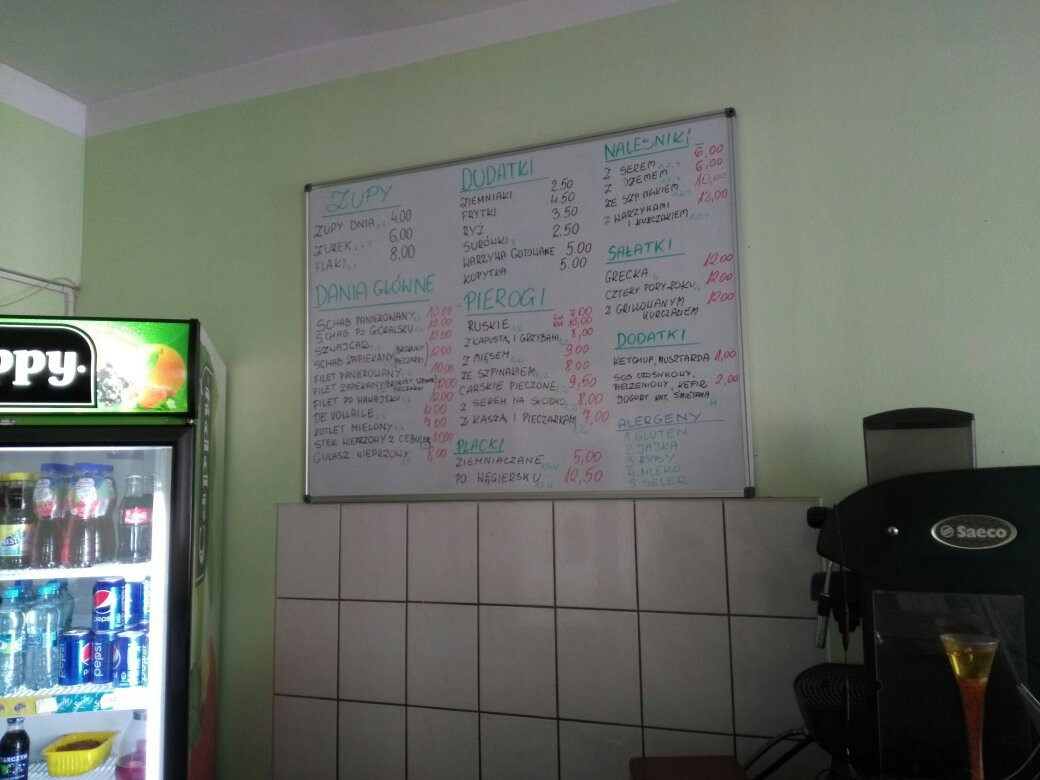 ZUPY
ZUPY DNIA 4.00
ŻUREK 6.00
FLAKI 8,00
DANIA GŁÓWNE
SCHAB PANIEROWANY 10.00
SCHAB PO GÓRALSKU 12.00
SZNAJCAR 12.00
SCHAB ZAPIEKANY 12.00
FILET PANIEROWANY 10.00
FILET ZAPIEKANY
FILET PO HAWAJSKU
DE VOLLAILE
KOTLET MIELONY 7.00
STEK WIEPRZOWY Z CEBULĄ 10.00
GULASZ WIEPRZOWY 8.00
DODATKI
ZIEMNIAKI 2.50
FRYTKI 4.50
RYŻ 3.50
SURÓWKI 2.50
WARZYWA GOTOWANE 5.00
KOPYTKA 5.00
PIEROGI
RUSKIE 7,00
Z KAPUSTĄ I GRZYBAMI 8,00
Z MIĘSEM 9.00
ZE SZPINAKIEM 8.00
CARSKIE PIECZONE 9,50
Z SEREM NA SŁODKO 8.00
Z KASZĄ I PIECZARKAMI 7,00
PLACKI
ZIEMNIACZANE 5,00
PO WĘGIERSKU 12,50
NALEŚNIKI
Z SEREM 6,00
Z DŻEMEM 6,00
ZE SZPINAKIEM 10,00
Z WARZYWAMI 12,00
I KURCZAKIEM
SAŁATKI
GRECKA 12.00
CZTERY PORY ROKU 12.00
Z GRILLOWANYM 12.00
KURCZAKIEM
DODATKI
KETCHUP, MUSZTARDA 1,00
SOS CZOSNKOWY,
PIECZENIOWY, KEFIR 2,00
JOGURT NAT. ŚMIETANA
ALERGENY
1 GLUTEN
2 JAJKA
3 RYBY
4 MLEKO
5 SELER
ppy.
Saeco
pepsi
pepsi
pepsi